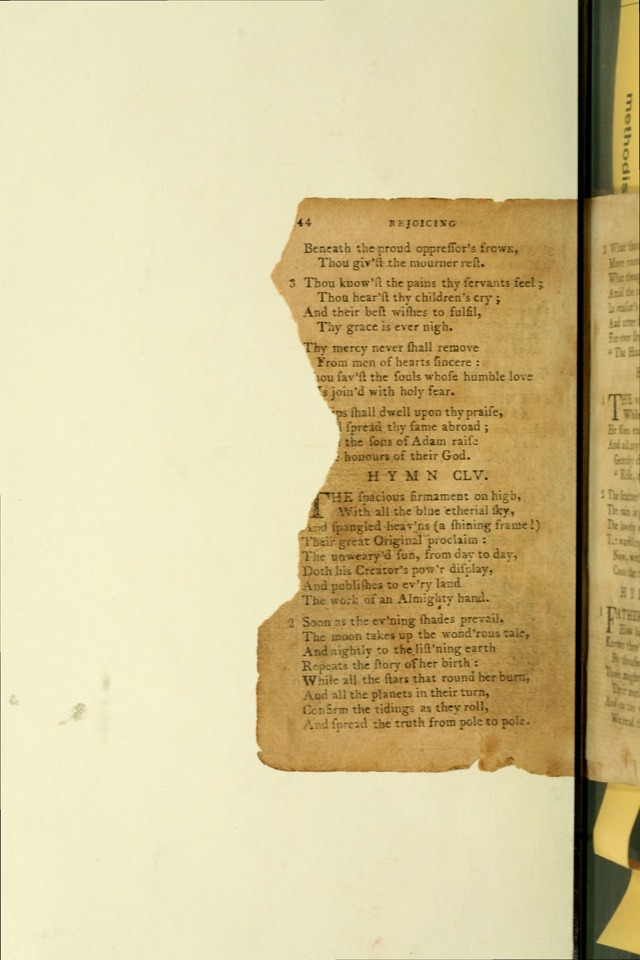 44 REJOICING
Beneath the proud oppreſſor's frown,
Thou giv'ſt the mourner reſt.
3 Thou know'ſt the pains thy ſervants feel;
Thou hear'ſt thy children's cry;
And their beſt wiſhes to fulfil,
Thy grace is ever nigh.
Thy mercy never ſhall remove
From men of hearts ſincere:
hou ſav'ſt the ſouls whoſe humble love
s join'd with holy fear.
ps ſhall dwell upon thy praiſe,
l ſpread thy fame abroad;
the ſons of Adam raiſe
honours of their God.
HYMN CLV.
THE ſpacious firmament on high,
With all the blue etherial ſky,
And ſpangled heav'ns (a ſhining frame!)
Their great Original proclaim:
The unweary'd ſun, from day to day,
Doth his Creator's pow'r diſplay,
And publiſhes to ev'ry land
The work of an Almighty hand.
2 Soon as the ev'ning ſhades prevail,
The moon takes up the wond'rous tale,
And nightly to the liſt'ning earth
Repeats the ſtory of her birth:
While all the ſtars that round her burn,
And all the planets in their turn,
Confirm the tidings as they roll,
And ſpread the truth from pole to pole.
methodis
3 What
What
And
For ever
" The
H
1 THE
He
And all my
2 The
The
The
Now,
H Y
1 FATHER
How
Knows